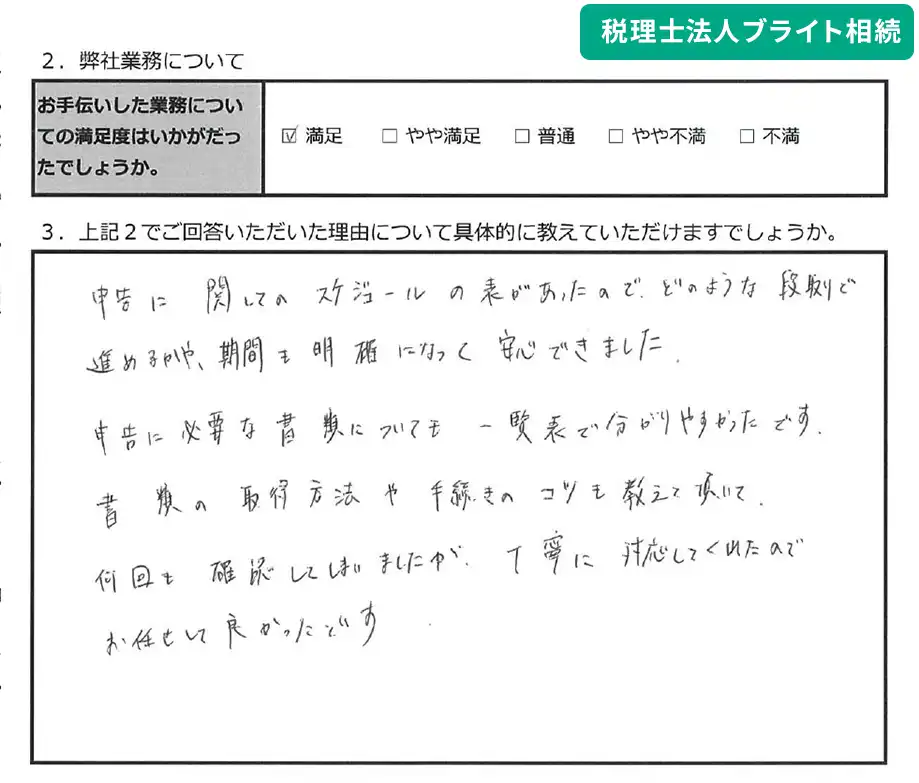 税理士法人ブライト相続
2．弊社業務について
お手伝いした業務につい
ての満足度はいかがだっ
たでしょうか。
☑ 満足 □ やや満足 □ 普通 □ やや不満 □ 不満
3．上記2でご回答いただいた理由について具体的に教えていただけますでしょうか。
申告に関してのスケジュールの表があったので、どのような段取りで
進めるかや、期間も明確になって安心できました。
申告に必要な書類についても一覧表で分かりやすかったです。
書類の取得方法や手続きのコツも教えて頂いて、
何回も確認してしまいましたが、丁寧に対応してくれたので
お任せして良かったです